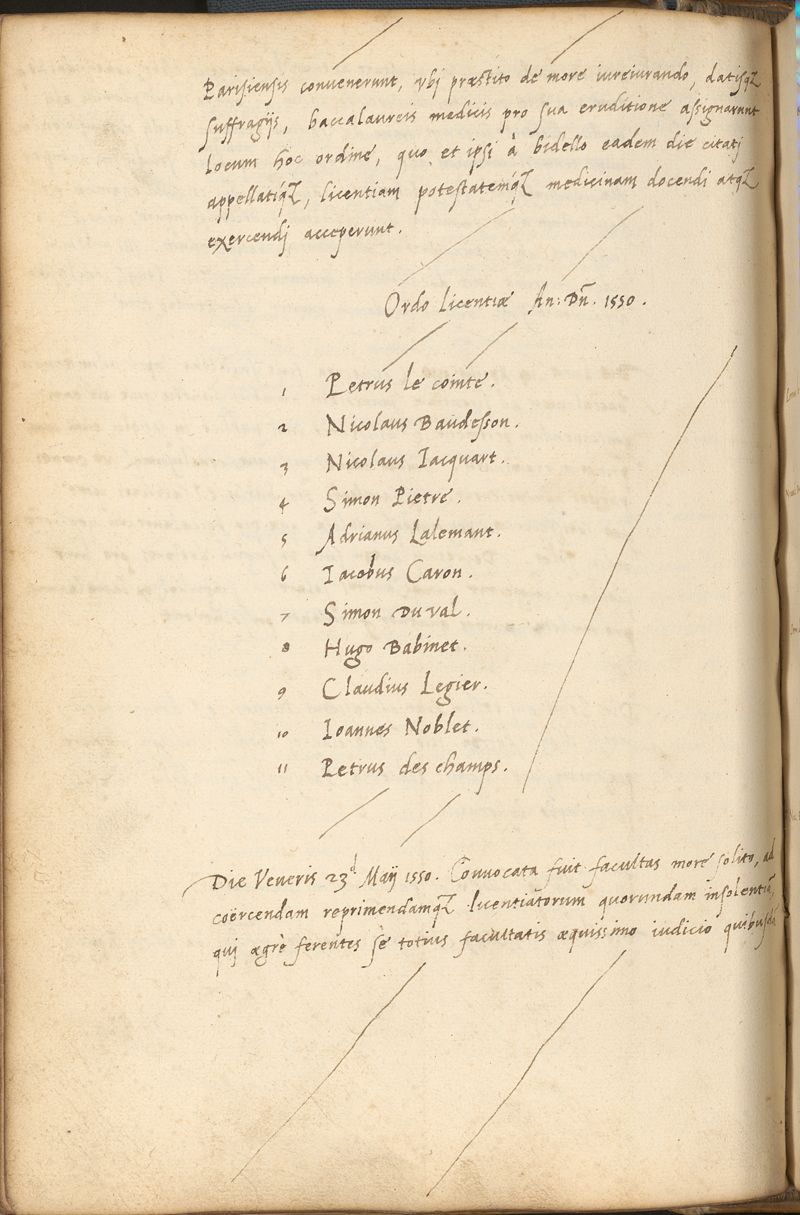 Parisiensis convenerunt, vbj præstito de more iureiurando, datisqꝫ
suffragijs, baccalaureis medicis pro sua eruditione assignarunt
locum hoc ordine, quo et ipsi à bidello eadem die citatj
appellatiqꝫ, licentiam potestatemqꝫ medicinam docendi atqꝫ
exercendj acceperunt.
Ordo licentiæ An: Dñ. 1550.
1 Petrus le comte.
2 Nicolaus Baudesson.
3 Nicolaus Iacquart.
4 Simon Pietre.
5 Adrianus Lalemant.
6 Iacobus Caron.
7 Simon Du val.
8 Hugo Babinet.
9 Claudius Legier.
10 Ioannes Noblet.
11 Petrus des champs.
Die Veneris 23ᵈ Maij 1550. Convocata fuit facultas more solito, ad
coërcendam reprimendamqꝫ licentiatorum quorundam insolentiā,
quj ægrè ferentes se totius facultatis æquissimo iudicio quibusdā